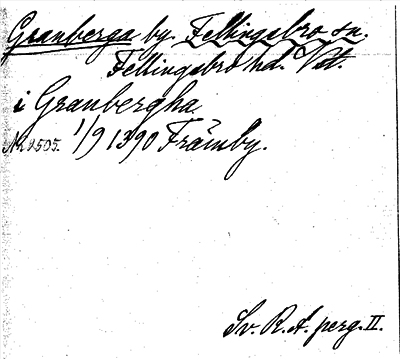 Granberga by. Fellingsbro sn.
Fellingsbro hd. Vstm.
i Granbergha
Nr 2505. 1/9 1390 Främby.
Sv. R. A. perg. II.